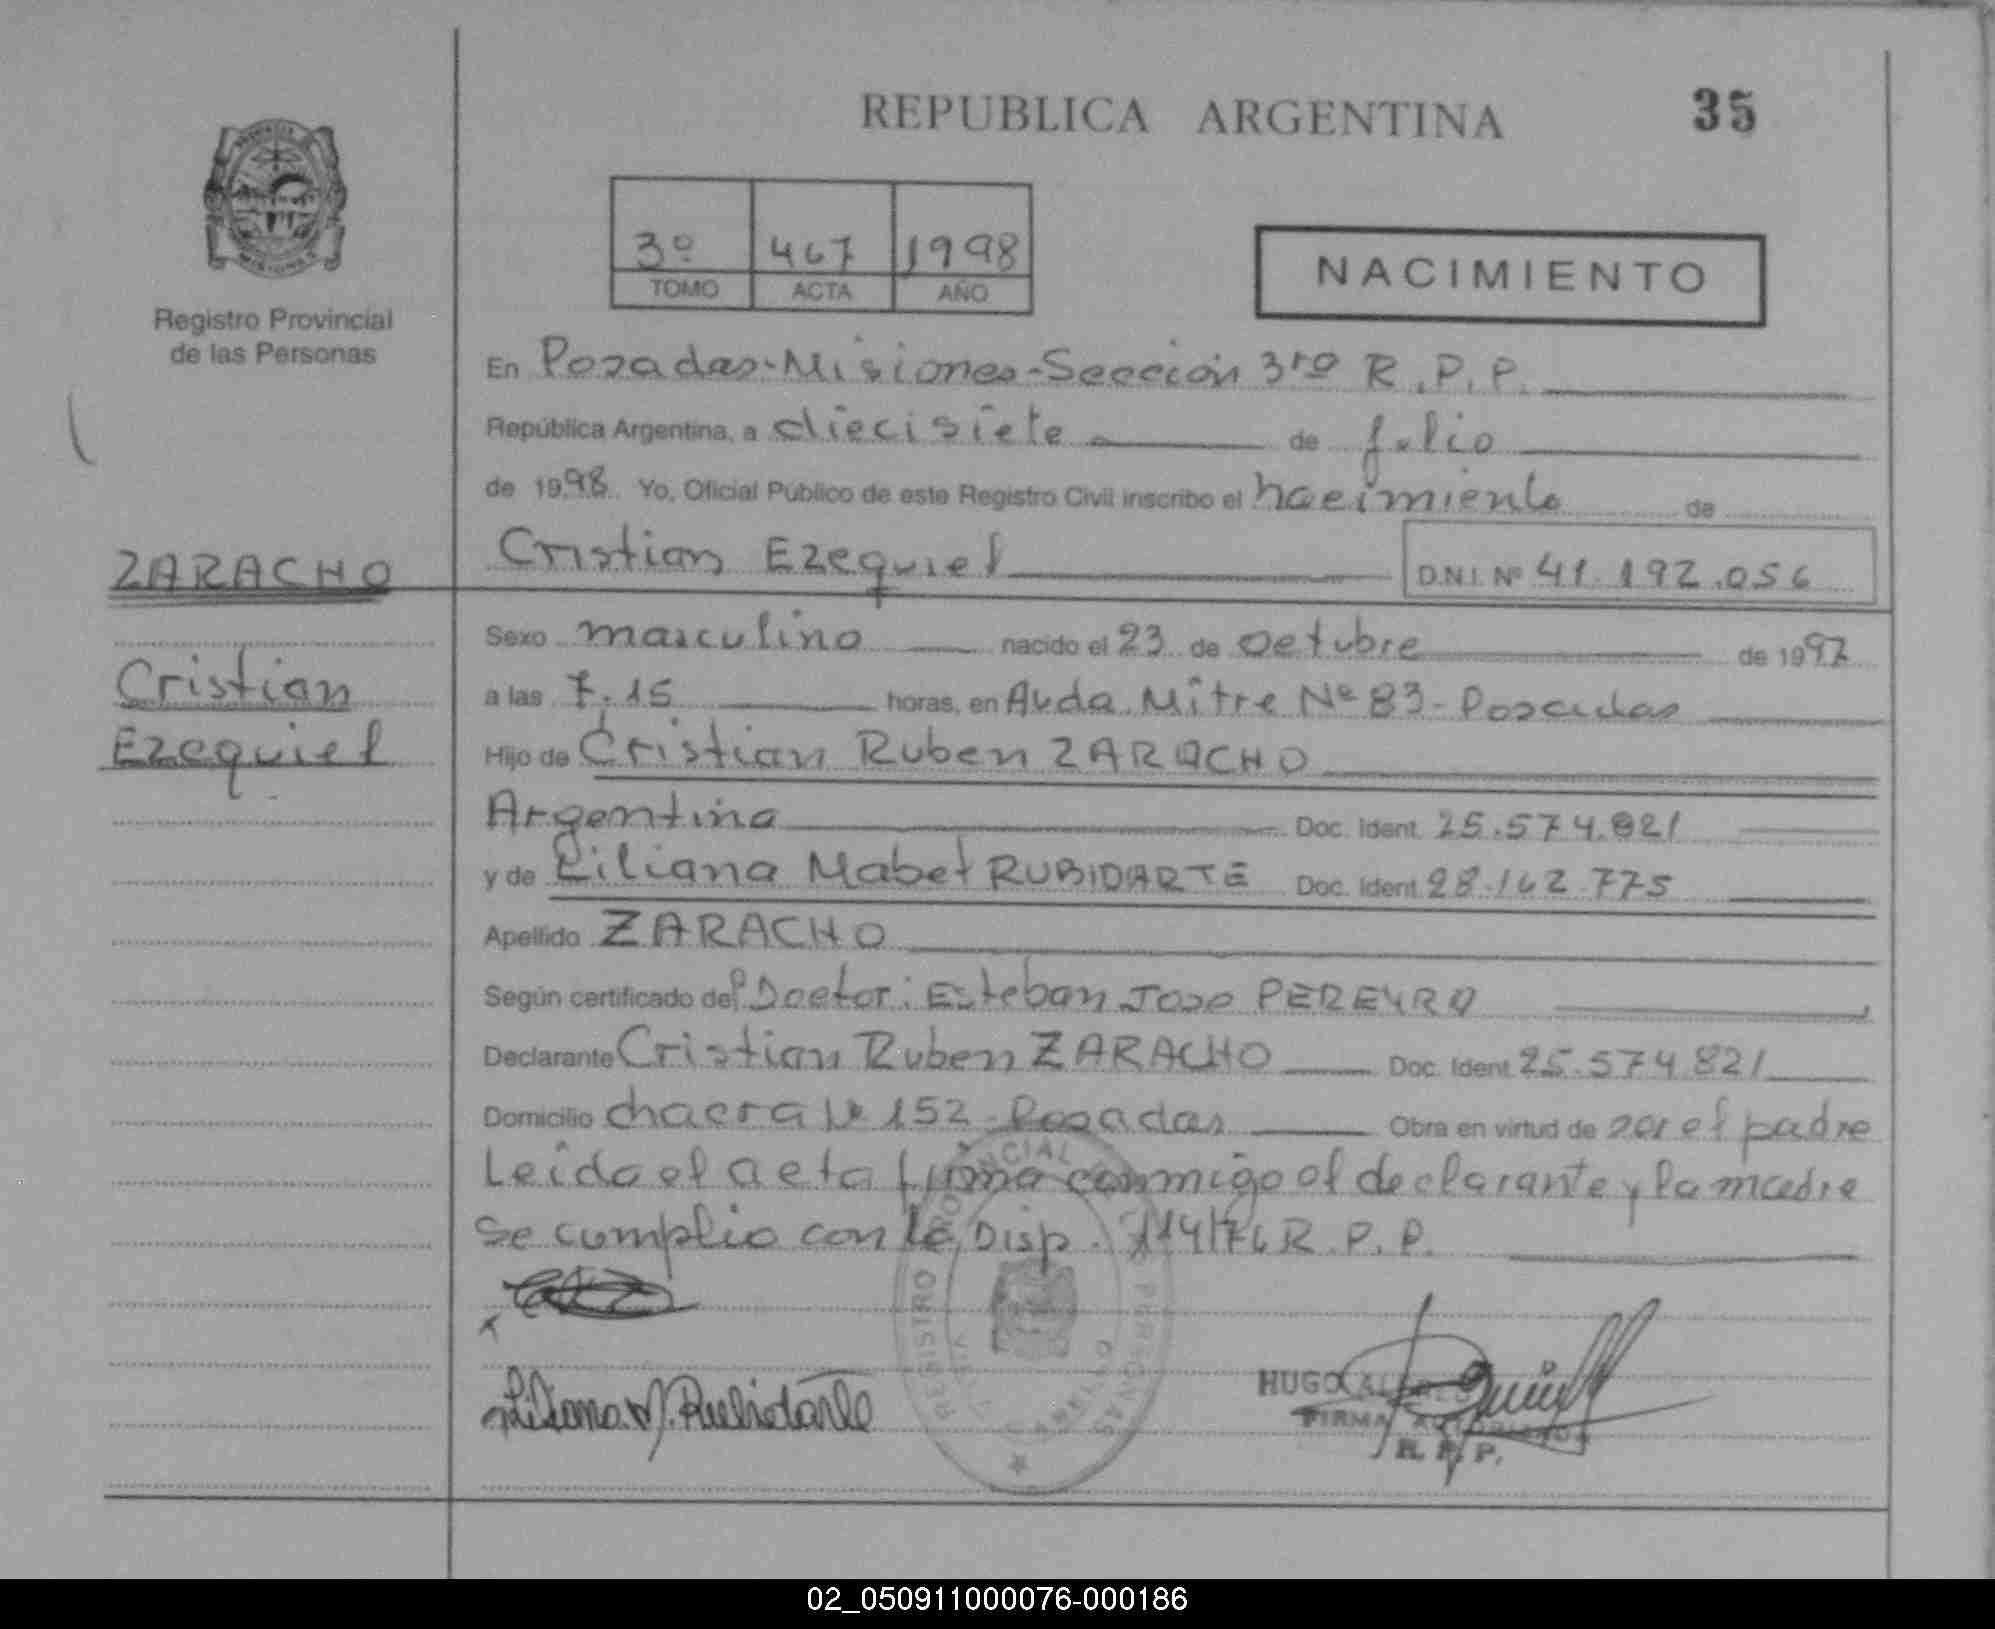 REPUBLICA ARGENTINA
35
3º 467 1998
TOMO ACTA AÑO
NACIMIENTO
Registro Provincial
de las Personas
En Posadas-Misiones-Sección 3ra R.P.P.
República Argentina, a diecisiete de julio
de 1998 Yo, Oficial Público de este Registro Civil inscribo el nacimiento de
Cristian Ezequiel D.N.I. Nº 41.192.056
ZARACHO
Cristian
Ezequiel
Sexo masculino nacido el 23 de Octubre de 1997
a las 7.15 horas, en Avda. Mitre Nº 83-Posadas
Hijo de Cristian Ruben ZARACHO
Argentina Doc. Ident. 25.574.821
y de Liliana Mabel RUBIDARTE Doc. Ident. 28.162.775
Apellido ZARACHO
Según certificado del Doctor: Esteban Jose PEREYRO
Declarante Cristian Ruben ZARACHO Doc. Ident. 25.574.821
Domicilio chacra Nº 152-Posadas Obra en virtud de ser el padre
Leido el acta firma conmigo el declarante y la madre
se cumplio con la Disp. 114/76 R.P.P.
Liliana M. Rubidarte
HUGO
FIRMA AUTORIZADA
R. P. P.
REGISTRO PROVINCIAL PERSONAS
02_050911000076-000186